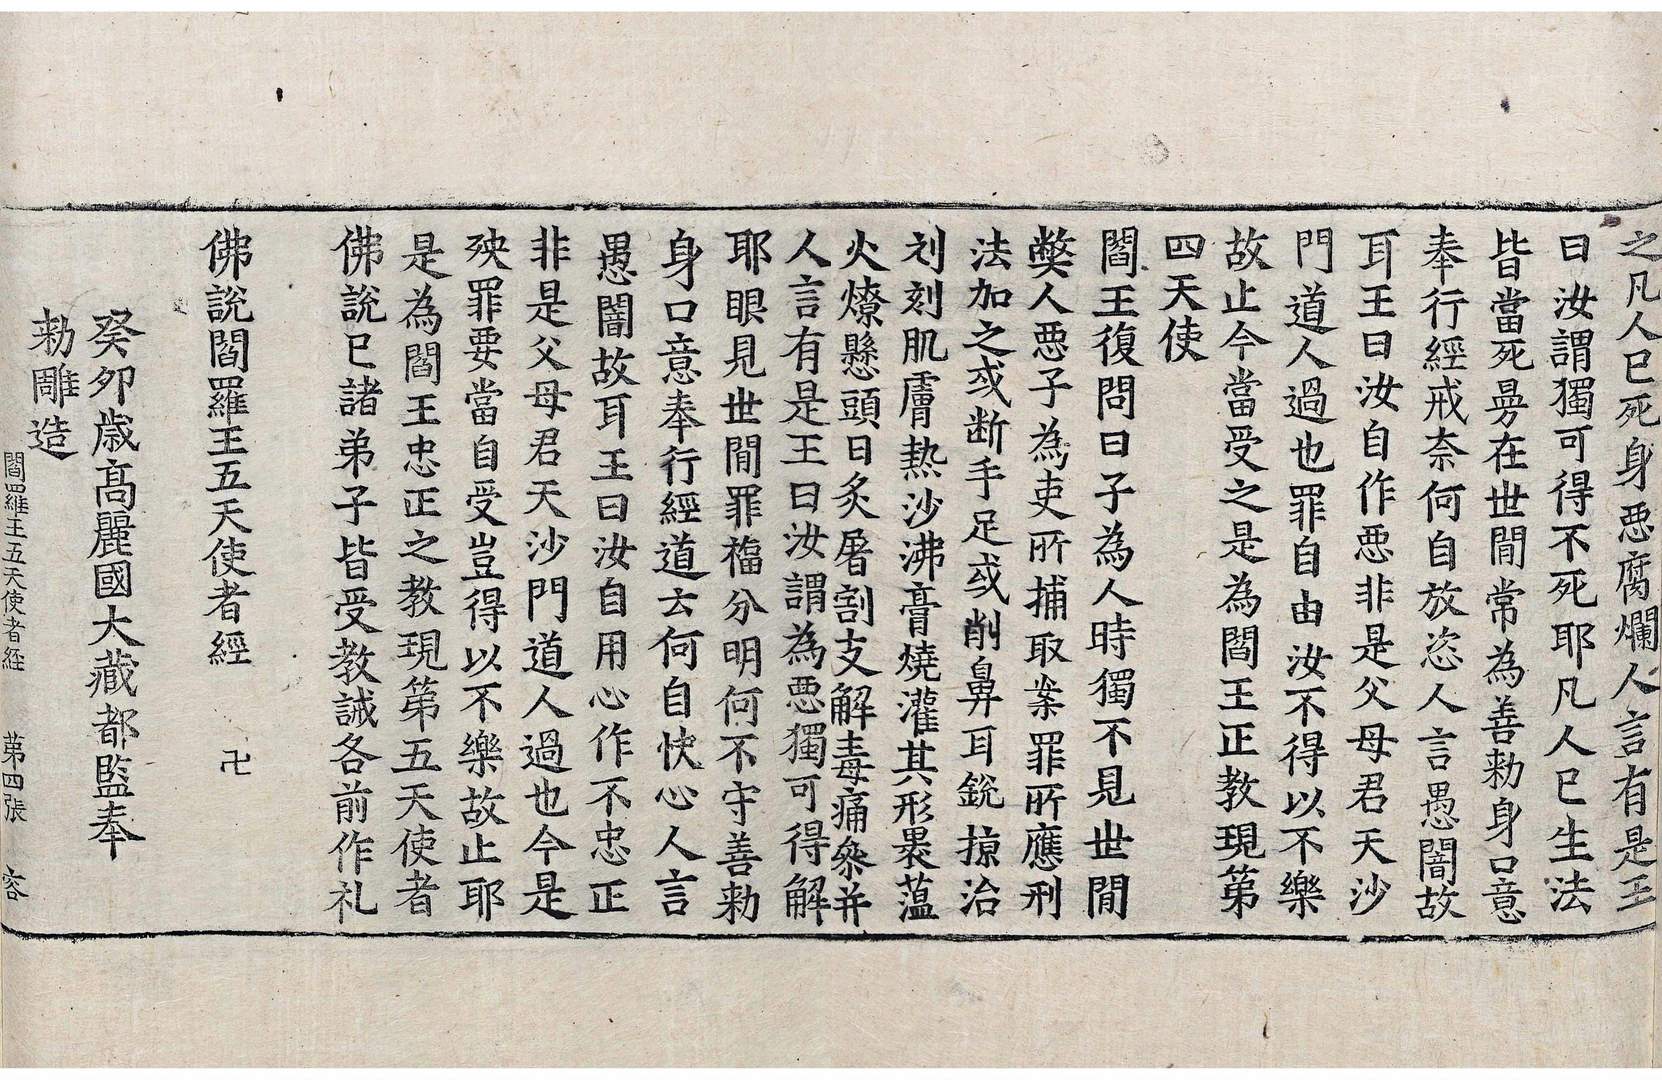 之凡人已死身惡腐爛人言有是王
曰汝謂獨可得不死耶凡人已生法
皆當死曼在世間常為善勑身口意
奉行經戒奈何自放恣人言愚闇故
耳王曰汝自作惡非是父母君天沙
門道人過也罪自由汝不得以不樂
故止今當受之是為閻王正教現第
四天使
閻王復問曰子為人時獨不見世間
弊人惡子為吏所捕取案罪所應刑
法加之或断手足或削鼻耳銳掠治
刓刻肌膚熱沙沸膏燒灌其形裹蒀
火燎懸頭日炙屠割支解毒痛叅并
人言有是王曰汝謂為惡獨可得解
耶眼見世間罪福分明何不守善勑
身口意奉行經道云何自快心人言
愚闇故耳王曰汝自用心作不忠正
非是父母君天沙門道人過也今是
殃罪要當自受豈得以不樂故止耶
是為閻王忠正之教現第五天使者
佛說已諸弟子皆受教誡各前作礼
佛說閻羅王五天使者經 卍
癸卯歲高麗國大藏都監奉
勑雕造
閻羅王五天使者経 第四張 容